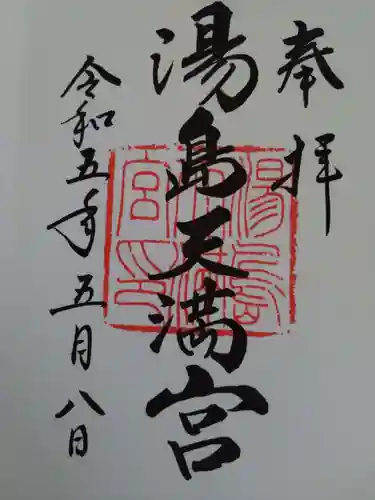 奉拝
湯島天満宮
令和五年五月八日
湯島
天満
宮印